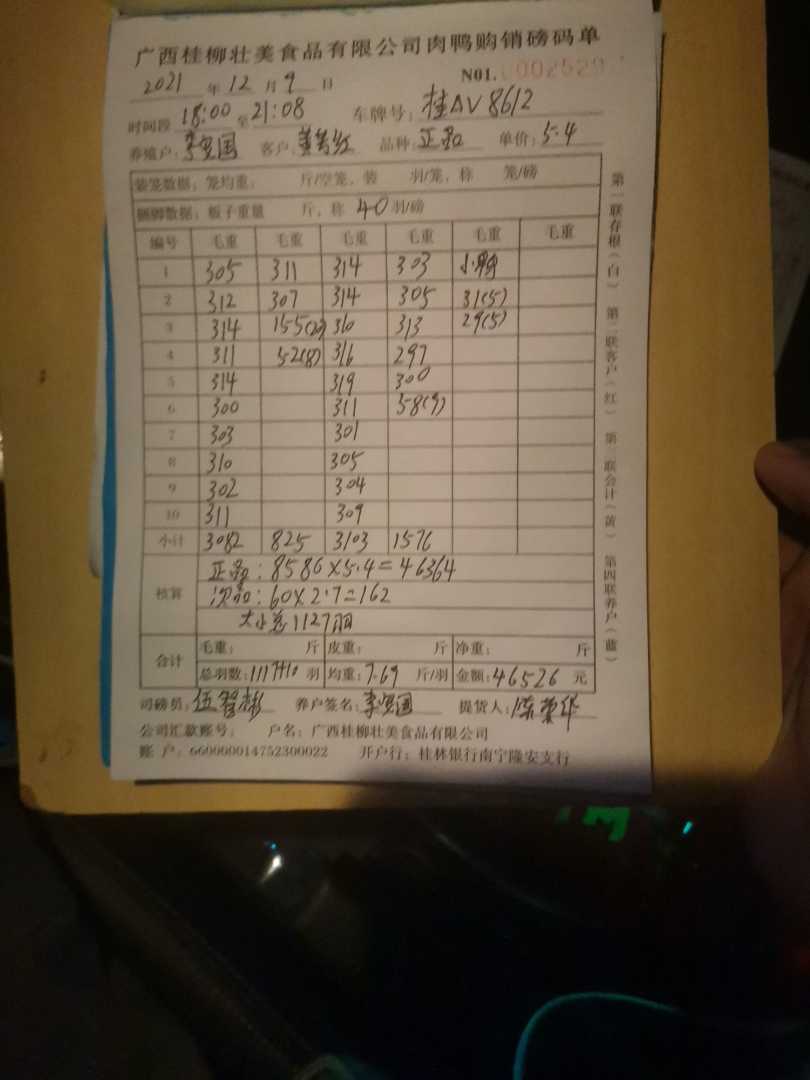 广西桂柳壮美食品有限公司肉鸭购销磅码单
2021 年 12 月 9 日 N01. 0002529
时间段 18:00 至 21:08 车牌号: 桂AV8612
养殖户: 李坚国 客户: 品种: 正品 单价: 5.4
装笼数据: 笼均重: 斤/空笼, 装 羽/笼, 称 笼/磅
捆脚数据: 板子重量 斤, 称 40 羽/磅
编号 毛重 毛重 毛重 毛重 毛重 毛重
1 305 311 314 303 小鸭
2 312 307 314 305 31(5)
3 314 155(20) 310 313 29(5)
4 311 52(8) 316 297
5 314 319 300
6 300 311 58(9)
7 303 301
8 310 305
9 302 304
10 311 309
小计 3082 825 3103 1576
核算 正品: 8586×5.4=46364
次品: 60×2.7=162
大小总1127羽
合计 毛重: 斤 皮重: 斤 净重: 斤
总羽数: 1117+10 羽 均重: 7.69 斤/羽 金额: 46526 元
司磅员: 伍智彬 养户签名: 李坚国 提货人: 陈荣华
公司汇款账号: 户名: 广西桂柳壮美食品有限公司
账 户: 660000014752300022 开户行: 桂林银行南宁隆安支行
第一联存根(白) 第二联客户(红) 第 联会计(黄) 第四联养户(蓝)